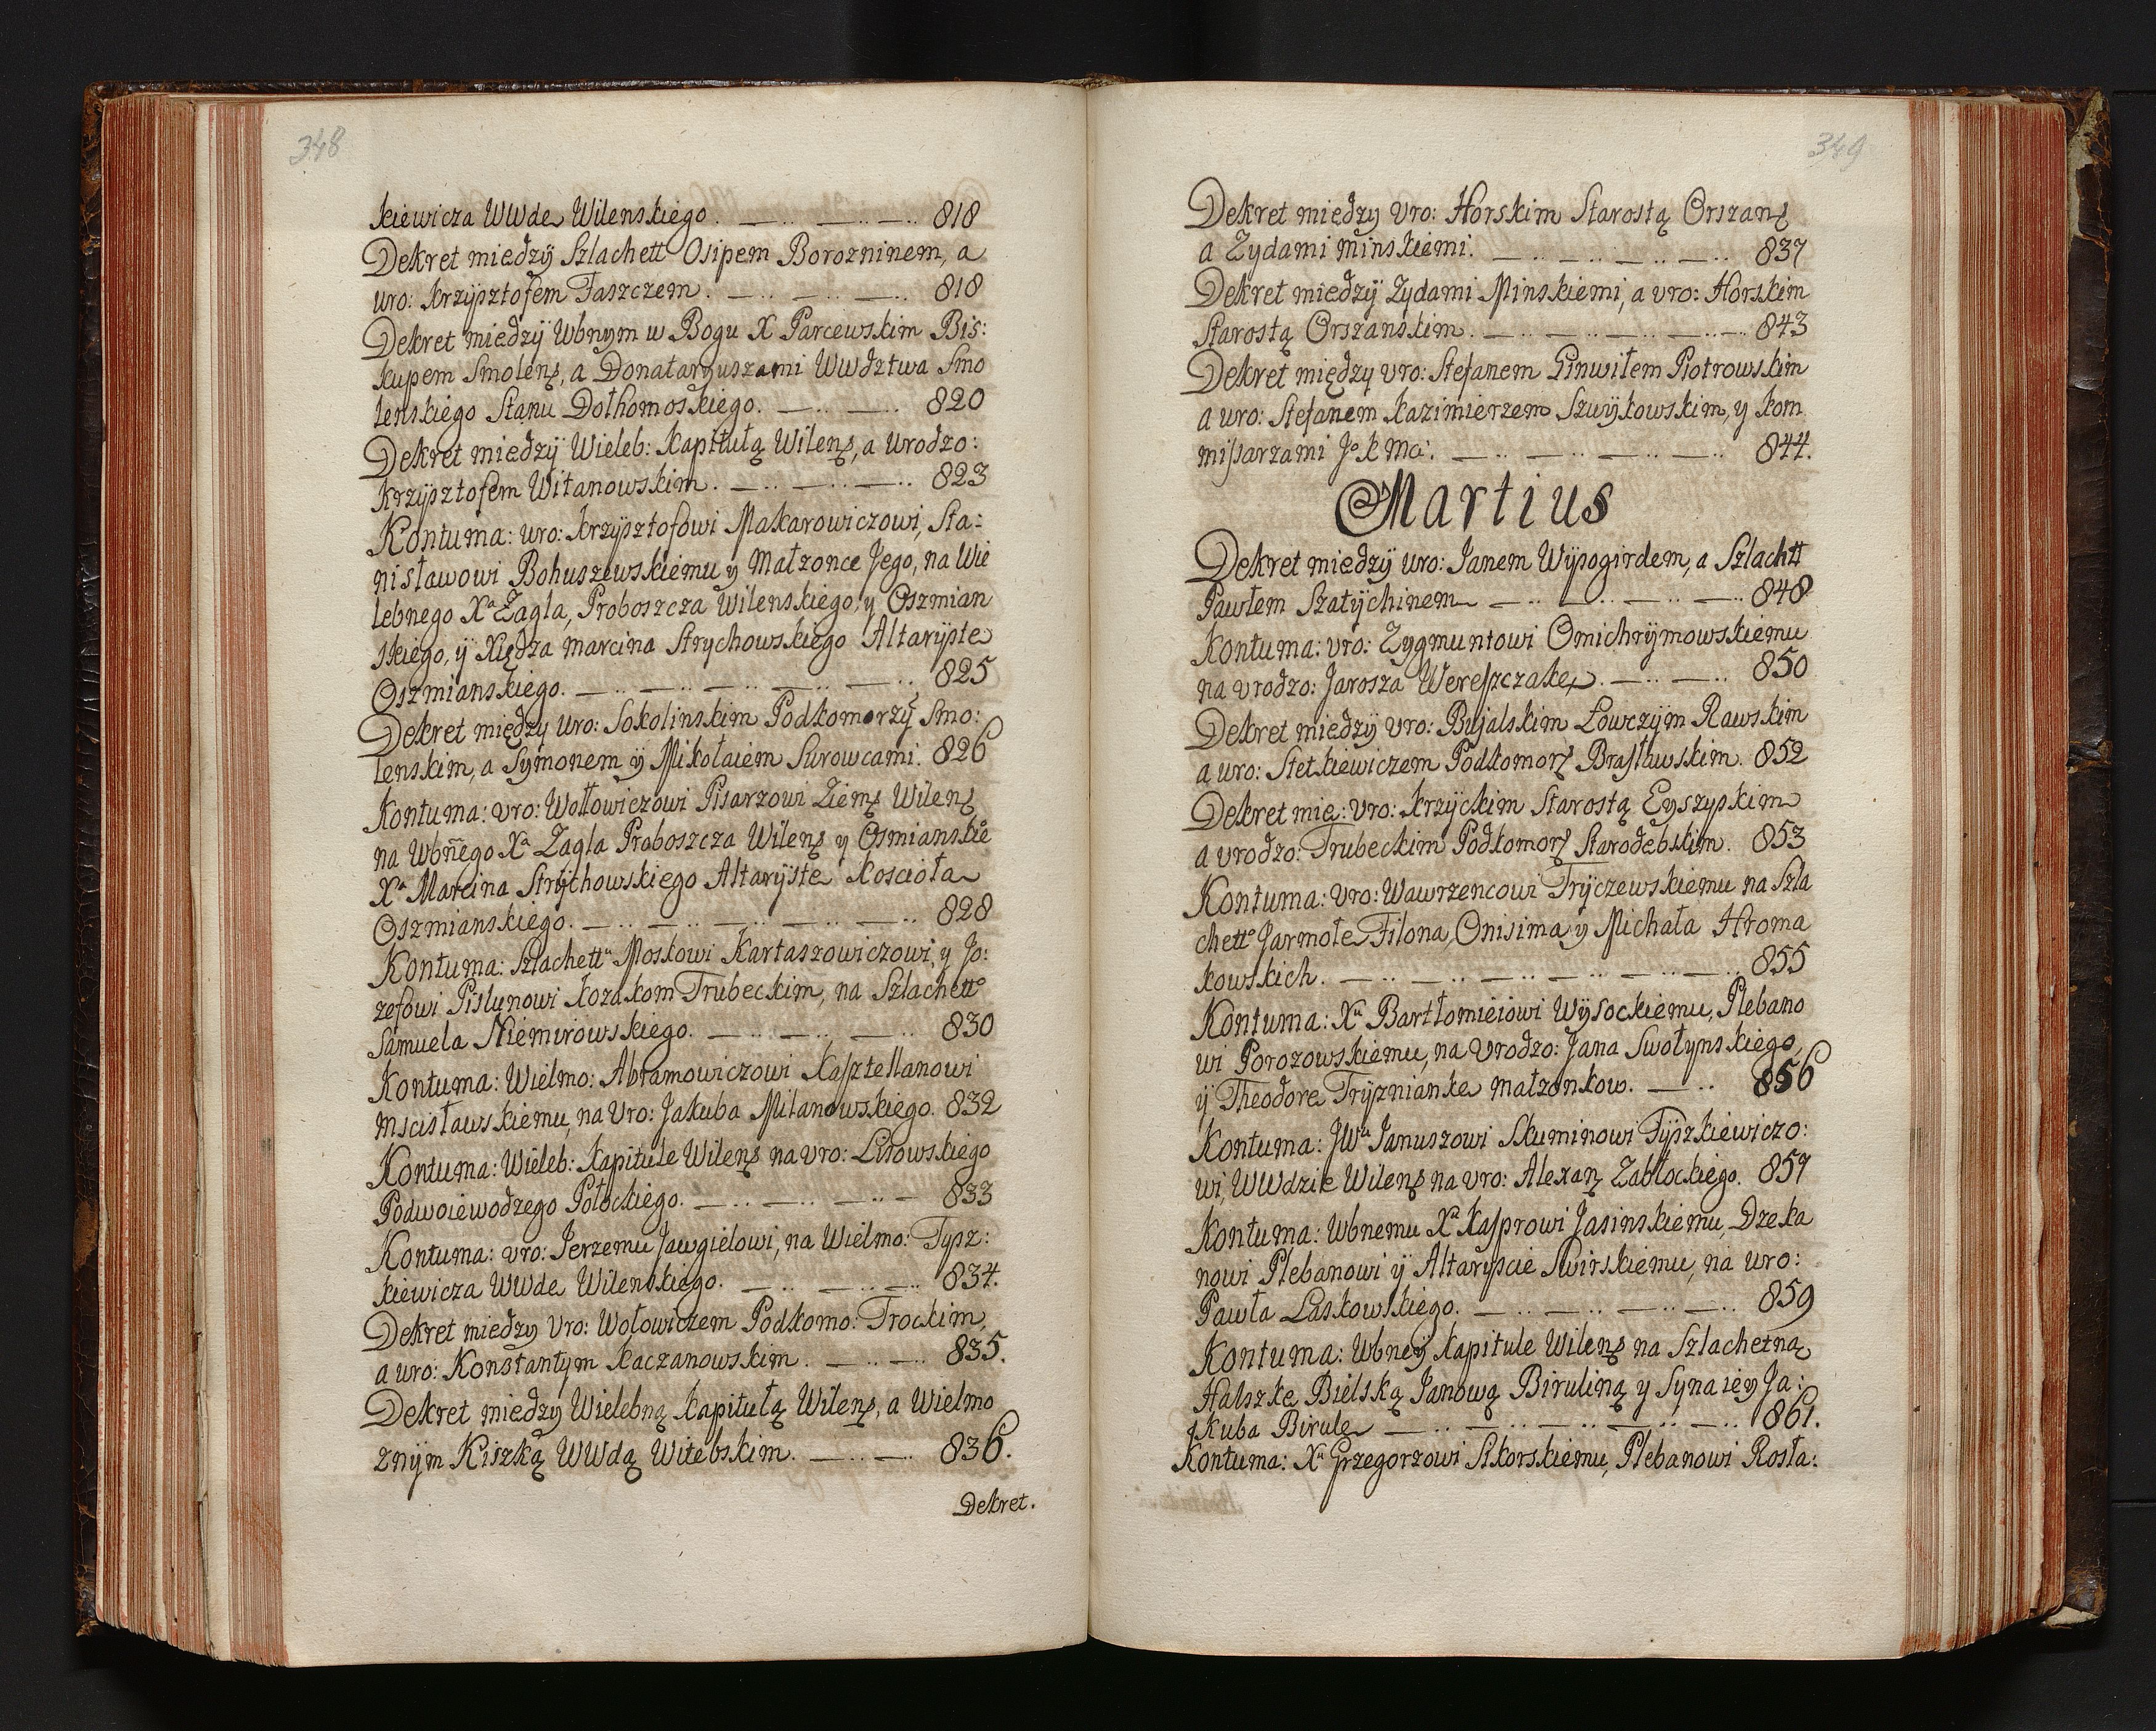 348
kiewicza WWde Wilenskiego. 818
Dekret miedzÿ Szlachett Osipem Borozninem, a
uro: Krzÿsztofem Faszczem. 818
Dekret miedzÿ Wbnym w Bogu X Parcewskim Bis:
kupem Smolens, a Donataryuszami WWdztwa Smo
lenskiego Stanu Dołhomoskiego. 820
Dekret miedzÿ Wieleb: Kapitułą Wilens, a Urodzo:
Krzÿsztofem Witanowskim. 823
Kontuma: uro: Krzÿsztofowi Makarowiczowi, Sta:
nisławowi Bohuszewskiemu y Małzonce Jego, na Wie
lebnego Xa Zagla, Proboszcza Wilenskiego, y Oszmian
skiego, ÿ Xiędza Marcina Strychowskiego Altarÿste
Oszmianskiego. 825
Dekret między Uro: Sokolinskim Podkomorzÿ Smo:
lenskim, a Symonem ÿ Mikołaiem Surowcami. 826
Kontuma: vro: Wołłowiczowi Pisarzowi Ziems Wilens
na Wbnego Xa Zagla Proboszcza Wilens y Osmianskie
Xa Marcina Strÿchowskiego Altarÿste Koscioła
Oszmianskiego. 828
Kontuma: Szlachettu Moskowi Kartaszowiczowi, y Jo:
zefowi Pislunowi Kozakom Trubeckim, na Szlachetto
Samuela Niemirowskiego. 830
Kontuma: Wielmo: Abramowiczowi Kasztellanowi
Mscisławskiemu, na Vro: Jakuba Milanowskiego. 832
Kontuma: Wieleb: Kapitule Wilens na vro: Lisowskiego
Podwoiewodzego Połockiego. 833
Kontuma: vro: Jerzemu Jawgielowi, na Wielmo: Tysz:
kiewicza WWde Wilenskiego. 834.
Dekret miedzy Vro: Wołowiczem Podkomo: Trockim,
a uro: Konstantym Kaczanowskim. 835.
Dekret miedzy Wielebną Kapitułą Wilens, a Wielmo
znÿm Kiszką WWdą Witebskim. 836.
Dekret.
349
Dekret miedzy Vro: Horskim Starostą Orszans
a Zydami minskiemi. 837
Dekret miedzÿ Zydami Minskiemi, a vro: Horskim
Starostą Orszanskim. 843
Dekret między vro: Stefanem Ginwiłem Piotrowskim
a uro: Stefanem Kazimierzem Szuÿkowskim, y kom
missarzami Jo K Mci. 844.
Martius
Dekret miedzÿ uro: Janem Wÿpogirdem, a Szlachtt
Pawłem Szatÿchinem 848
Kontuma: vro: Zygmuntowi Omichrÿmowskiemu
na vrodzo: Jarosza Wereszczake. 850
Dekret miedzÿ vro: Bujalskim Łowczÿm Rawskim
a uro: Stetkiewiczem Podkomors Brasławskim. 852
Dekret mię: Vro: Krzÿckim Starostą Eyszyskim
a vrodzo: Trubeckim Podkomors Starodebskim. 853
Kontuma: vro: Wawrzencowi Trÿczewskiemu na Szla
chetto Jarmołe, Filona, Onisima y Michała Hroma
kowskich. 855
Kontuma: Xu Bartłomieiowi Wÿsockiemu, Plebano
wi Porozowskiemu, na Vrodzo: Jana Swołynskiego,
ÿ Theodore Trÿznianke małzonkow. 856
Kontuma: JWu Januszowi Skuminowi Tÿszkiewiczo:
wi, WWdzie Wilens na vro: Alexans Zabłockiego. 857
Kontuma: Wbnemu Xu Kasprowi Jasinskiemu, Dzeka
nowi Plebanowi ÿ Altarÿscie Swirskiemu, na uro:
Pawła Laskowskiego. 859
Kontuma: Wbneÿ Kapitule Wilens na Szlachetną
Halszke Bielską Janową Birulinę y Syna iey Ja:
kuba Birule 861.
Kontuma: Xu Grzegorzowi Sikorskiemu, Plebanowi Rosła: